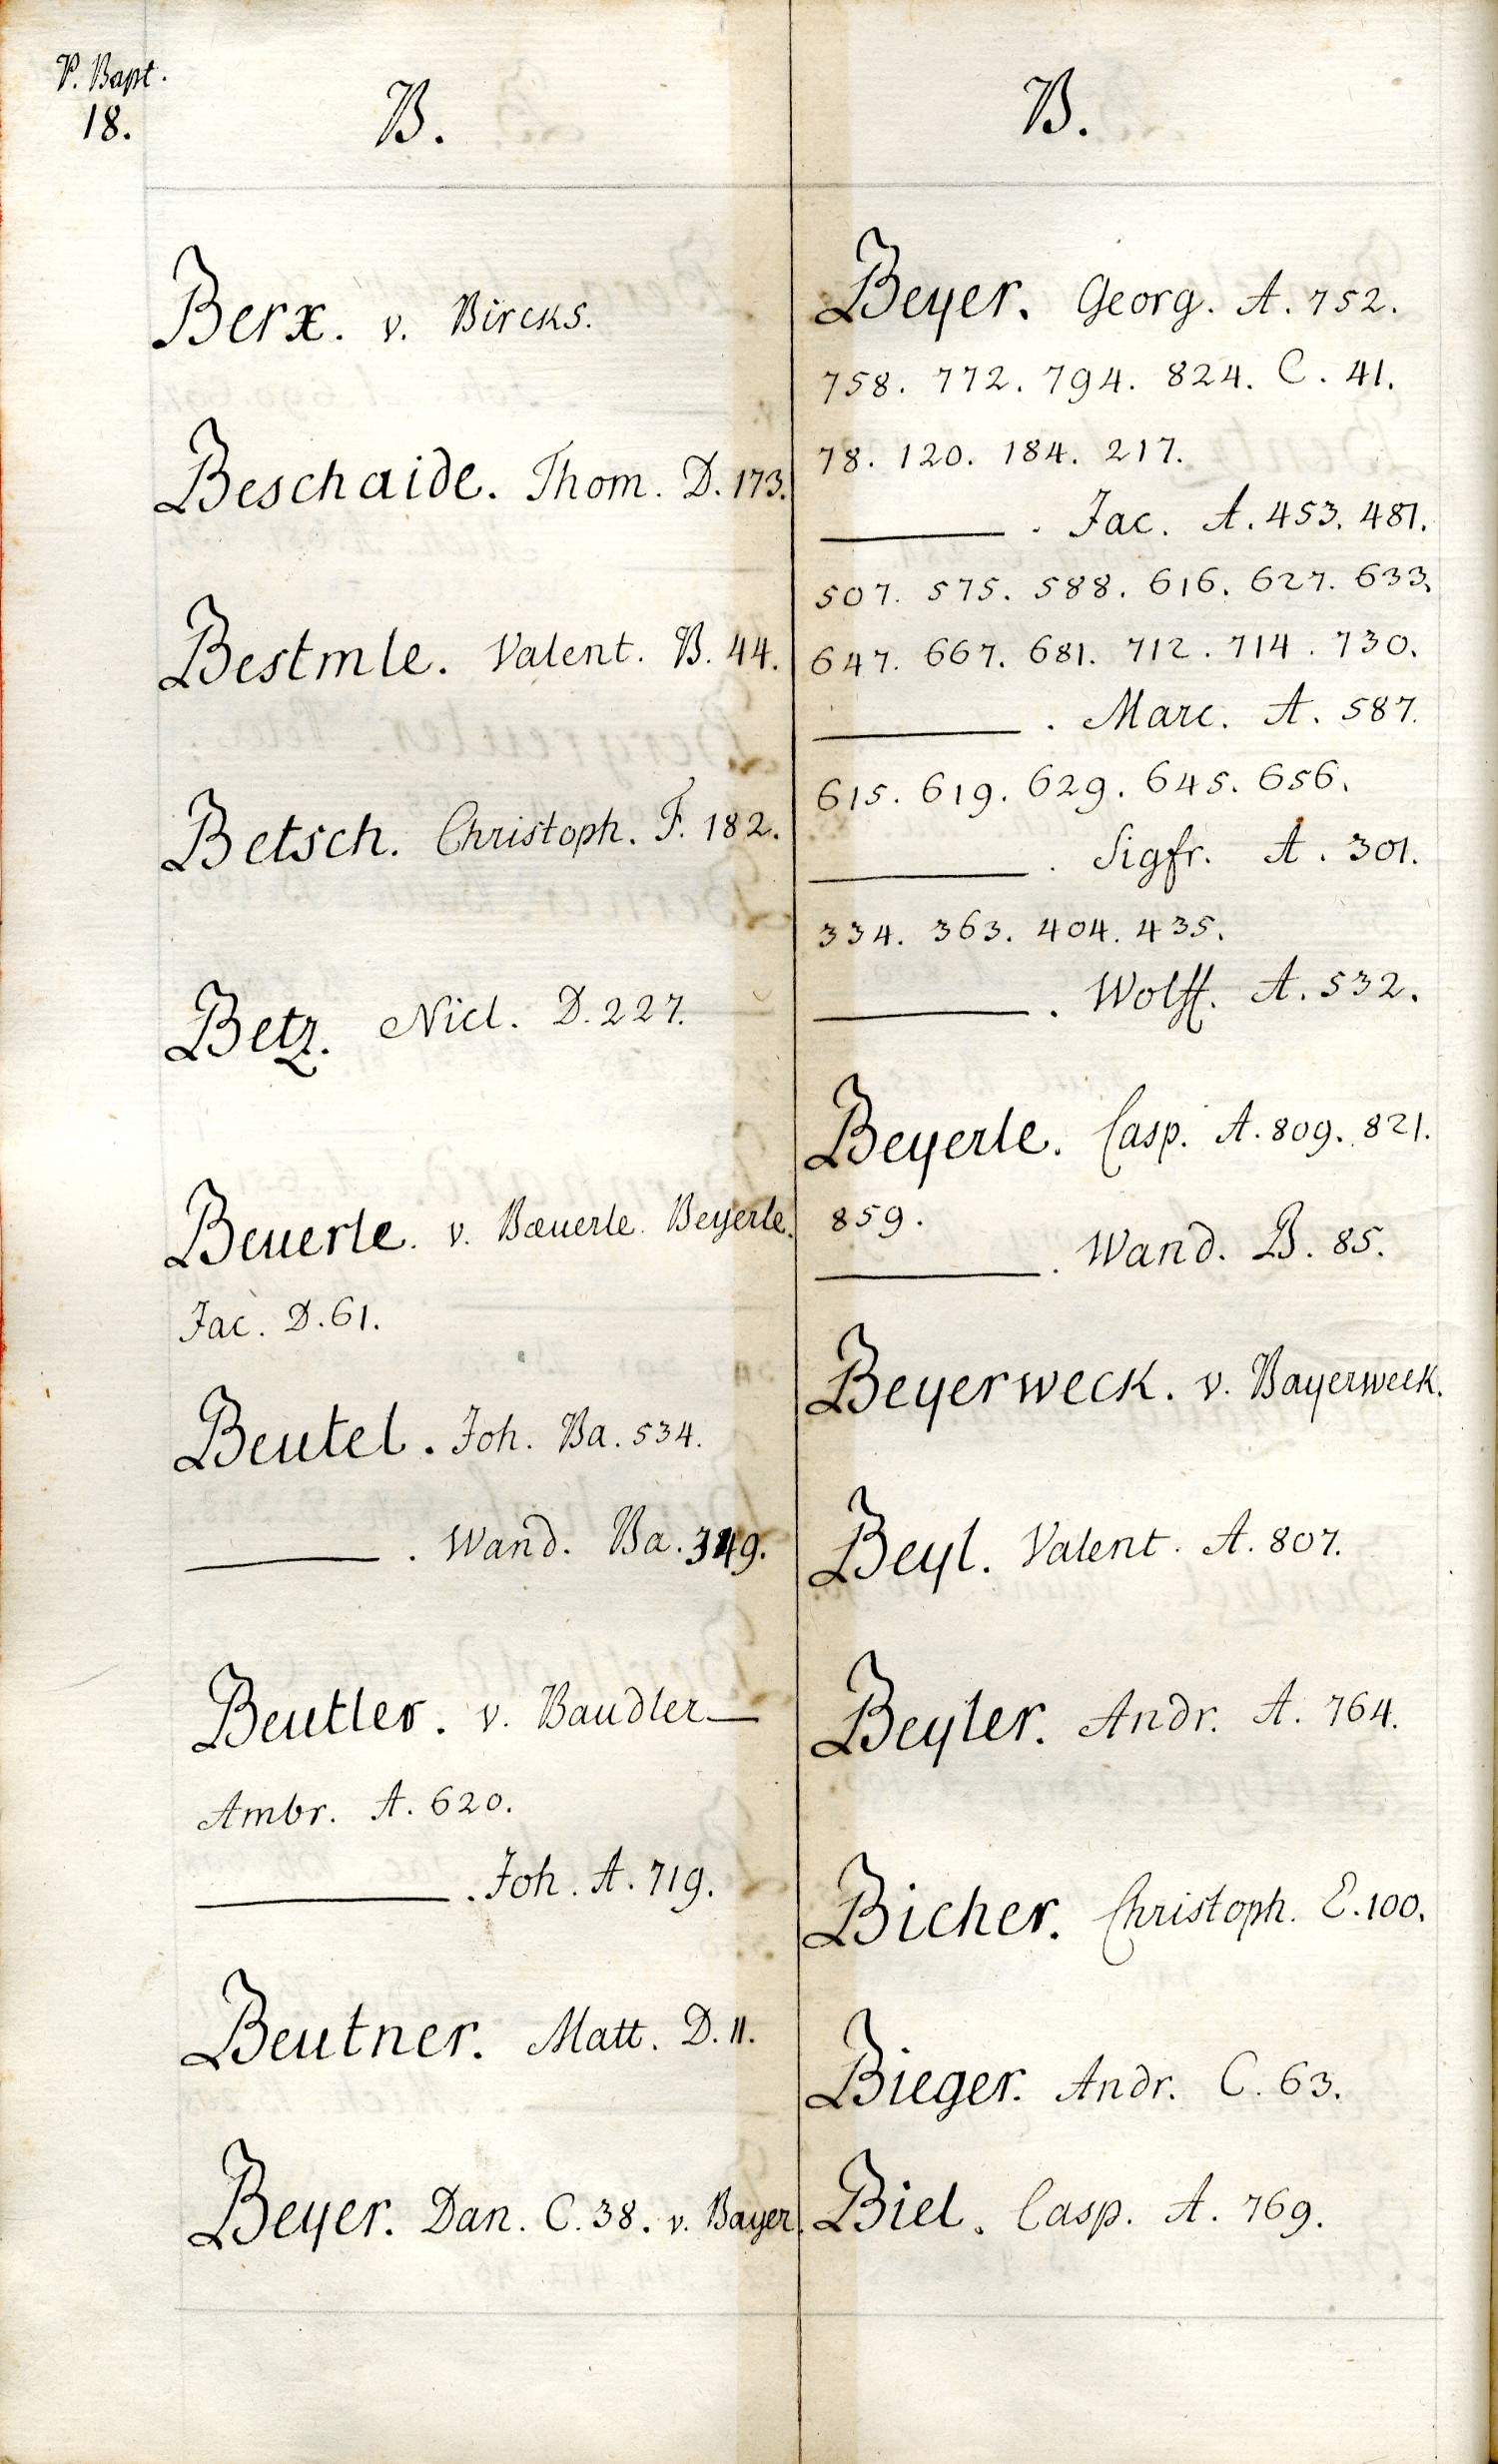 P. Bapt.
18.
B.
Berx. v. Bircks.
Beschaide. Thom. D. 173.
Bestmle. Valent. B. 44.
Betsch. Christoph. F. 182.
Betz. Nicl. D. 227.
Beuerle. v. Bæuerle. Beyerle.
Jac. D. 61.
Beutel. Joh. Ba. 534.
———. Wand. Ba.
Beutler. v. Baudler—
Ambr. A. 620.
———. Joh. A. 719.
Beutner. Matt. D. 11.
Beyer. Dan. C. 38. v. Bayer.
B.
Beyer. Georg. A. 752.
758. 772. 794. 824. C. 41.
78. 120. 184. 217.
———. Jac. A. 453. 481.
507. 575. 588. 616. 627. 633.
647. 667. 681. 712. 714. 730.
———. Marc. A. 587.
615. 619. 629. 645. 656.
———. Sigfr. A. 301.
334. 363. 404. 435.
———. Wolff. A. 532.
Beyerle. Casp. A. 809. 821.
859.
———. Wand. B. 85.
Beyerweck. v. Bayerweck.
Beyl. Valent. A. 807.
Beyler. Andr. A. 764.
Bicher. Christoph. E. 100.
Bieger. Andr. C. 63.
Biel. Casp. A. 769.